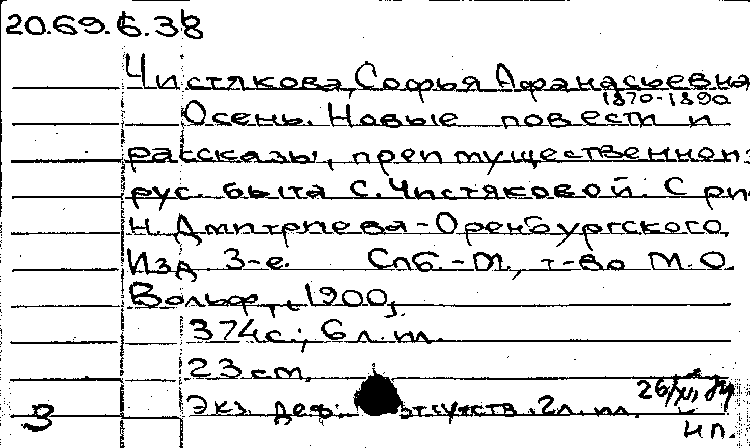 20.69.6.38
Чистякова, Софья Афанасьевна
1870-1890
Осень. Новые повести и
рассказы, преимущественно из
рус. быта С. Чистяковой. С рис.
Н. Дмитриева-Оренбургского.
Изд. 3-е. Спб.-М., т-во М.О.
Вольф, 1900,
374с.; 6 л. ил.
23 см.
Экз. деф.: отсутств. 2 л. ил.
З
нп.